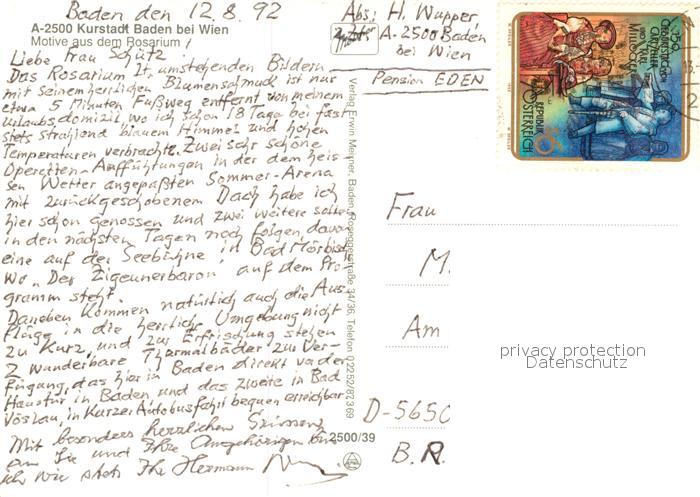 Baden den 12.8.92
A-2500 Kurstadt Baden bei Wien
Motive aus dem Rosarium
Liebe Frau Schütz
Das Rosarium lt. umstehenden Bildern
mit seinem herrlichen Blumenschmuck ist nur
etwa 5 Minuten Fußweg entfernt von meinem
Urlaubsdomizil, wo ich schon 18 Tage bei fast
stets strahlend blauem Himmel und hohen
Temperaturen verbrachte. Zwei sehr schöne
Operetten-Aufführungen in der dem heis
sen Wetter angepaßten Sommer-Arena
mit zurückgeschobenem Dach habe ich
hier schon genossen und zwei weitere sollen
in den nächsten Tagen noch folgen, davon
eine auf der Seebühne in Bad Mörbisch
wo "Der Zigeunerbaron" auf dem Pro
gramm steht.
Daneben kommen natürlich auch die Aus
flüge in die herrliche Umgebung nicht
zu kurz, und zur Erfrischung stehen
2 wunderbare Thermalbäder zur Ver-
fügung, das hier in Baden direkt vor der
Haustür in Baden und das zweite in Bad
Vöslau, in kurzer Autobusfahrt bequem erreichbar
Mit besonders herzlichen Grüssen
an Sie und Ihre Angehörigen bin
ich wie stets Ihr Hermann
Verlag Erwin Meixner, Baden, Roseggerstraße 34/36, Telefon 02252/87369
2500/39
Abs: H. Wupper,
A-2500 Baden
bei Wien
Pension EDEN
REPUBLIK
ÖSTERREICH
Frau
M.
Am
D-5650
B.R.
privacy protection
Datenschutz